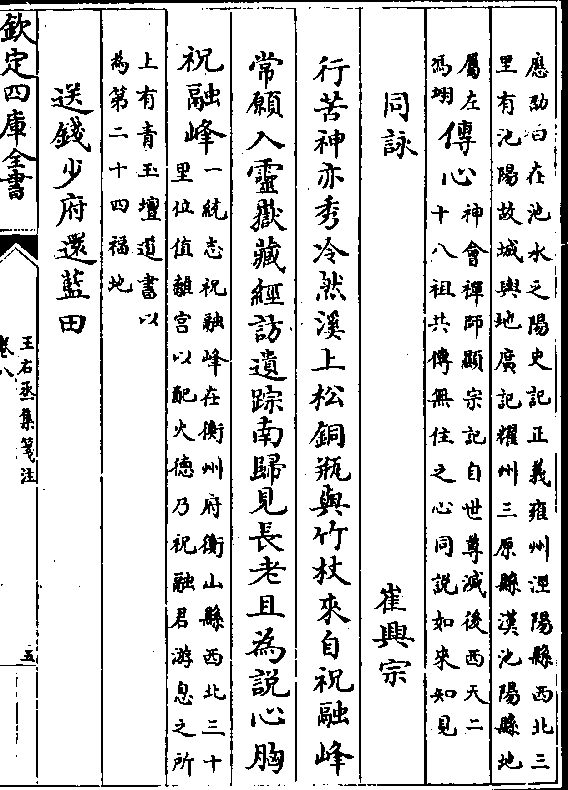 應劭曰在池水之陽史記正義雍州涇陽縣西北三
里有池陽故城輿地廣記耀州三原縣漢池陽縣地
屬左
馮翊
傳心
神會禪師顯宗記自世尊滅後西天二
十八祖共傳無住之心同説如來知見
同詠
崔興宗
行苦神亦秀冷然溪上松銅瓶與竹杖來自祝融峰
常願入靈嶽藏經訪遺踪南歸見長老且為説心胸
祝融峰
一統志祝融峰在衡州府衡山縣西北三十
里位值離宫以配火德乃祝融君游息之所
上有青玉壇道書以
為第二十四福地
送錢少府還藍田
欽定四庫全書
王右丞集箋注
卷八
五